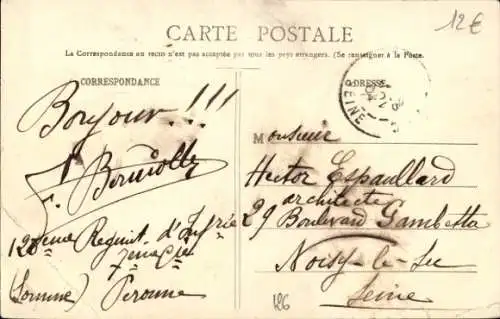 12€
CARTE POSTALE
La Correspondance au recto n'est pas acceptée par tous les pays étrangers. (Se renseigner à la Poste.
CORRESPONDANCE
ADRESSE
SEINE
Bonjour !!!
Monsieur
Hector Espaullard
architecte
29 Boulevard Gambetta
Noisy-le-Sec
Seine
128eme Regnit. d'Infrie
7eme Cie
(Somme) Peronne
126